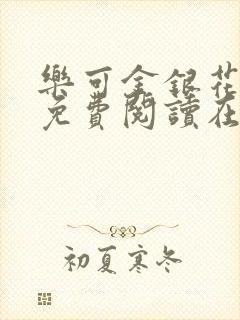 樂可金銀花
免費閱讀在
初夏寒冬